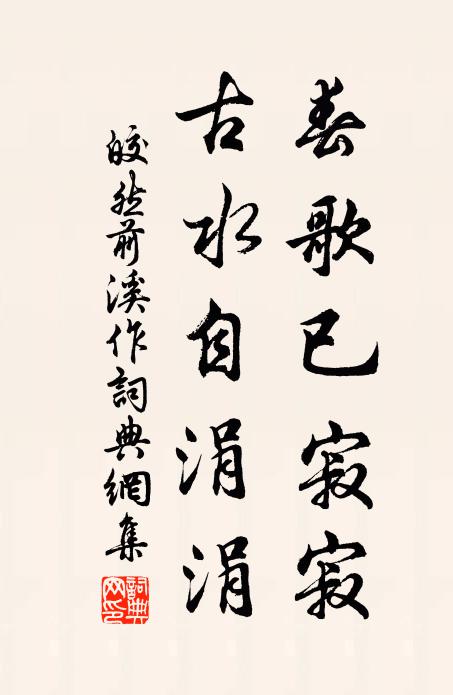 春歌已寂寂
古水自涓涓
皎然前溪作詞典網集
詞典網印